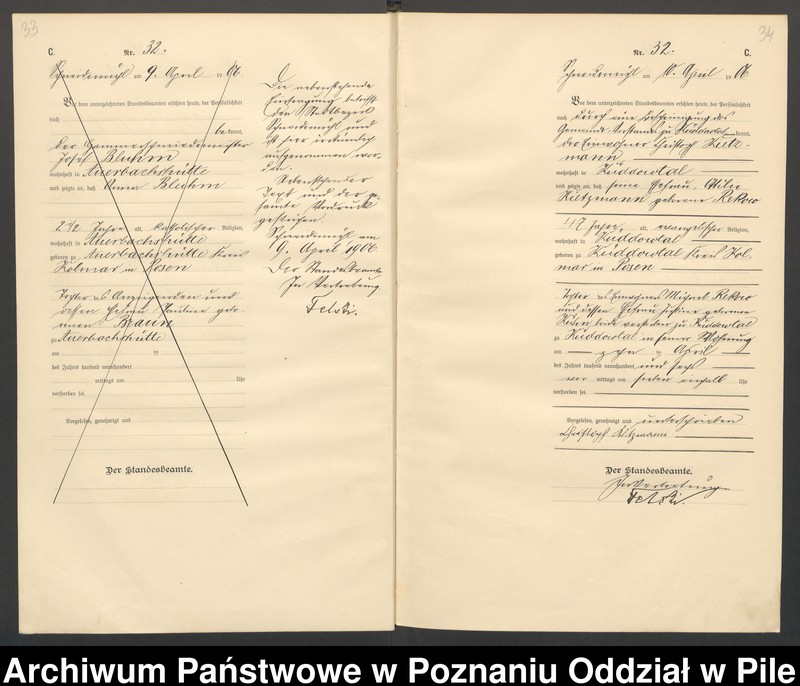 33
C.
Nr. 32.
Schneidemühl am 9. April 1906
Vor dem unterzeichneten Standesbeamten erschien heute, der Persönlichkeit
nach
be kannt,
der Hammerschmiedemeister
Josef Bluhm
wohnhaft in Auerbachshütte
und zeigte an, daß Anna Bluhm
2 1/2 Jahre alt, katholischer Religion,
wohnhaft in Auerbachshütte
geboren zu Auerbachshütte Kreis
Kolmar in Posen
Tochter des Anzeigenden und
dessen Ehefrau Pauline geb-
orenen Braun
zu Auerbachshütte
am ten
des Jahres tausend neunhundert
mittags um Uhr
verstorben sei.
Vorgelesen, genehmigt und
Der Standesbeamte.
Die nebenstehende
Eintragung betrifft
den Stadtbezirk
Schneidemühl und
ist hier irrtümlich
aufgenommen wor-
den.
Nebenstehender
Text und der ge-
samte Vordruck
gestrichen.
Schneidemühl am
9. April 1906.
Der Standesbeamte
In Vertretung
34
Nr. 32.
C.
Schneidemühl am 10. April 1906
Vor dem unterzeichneten Standesbeamten erschien heute, der Persönlichkeit
nach durch eine Bescheinigung des
Gemeinde-Vorstandes zu Küddowtal kannt,
der Einwohner Christoph Kütz-
mann
wohnhaft in Küddowtal
und zeigte an, daß seine Ehefrau, Ottilie
Kützmann geborene Rekow
47 Jahre alt, evangelischer Religion,
wohnhaft in Küddowtal
geboren zu Küddowtal Kreis Kol-
mar in Posen
Tochter des Einwohners Michael Rekow
und dessen Ehefrau geborenen
beide verstorben zu Küddowtal
zu Küddowtal in seiner Wohnung
am zehnten April
des Jahres tausend neunhundert und sechs
vor mittags um sieben einhalb Uhr
verstorben sei.
Vorgelesen, genehmigt und unterschrieben
Christoph Kützmann
Der Standesbeamte.
In Vertretung
Archiwum Państwowe w Poznaniu Oddział w Pile